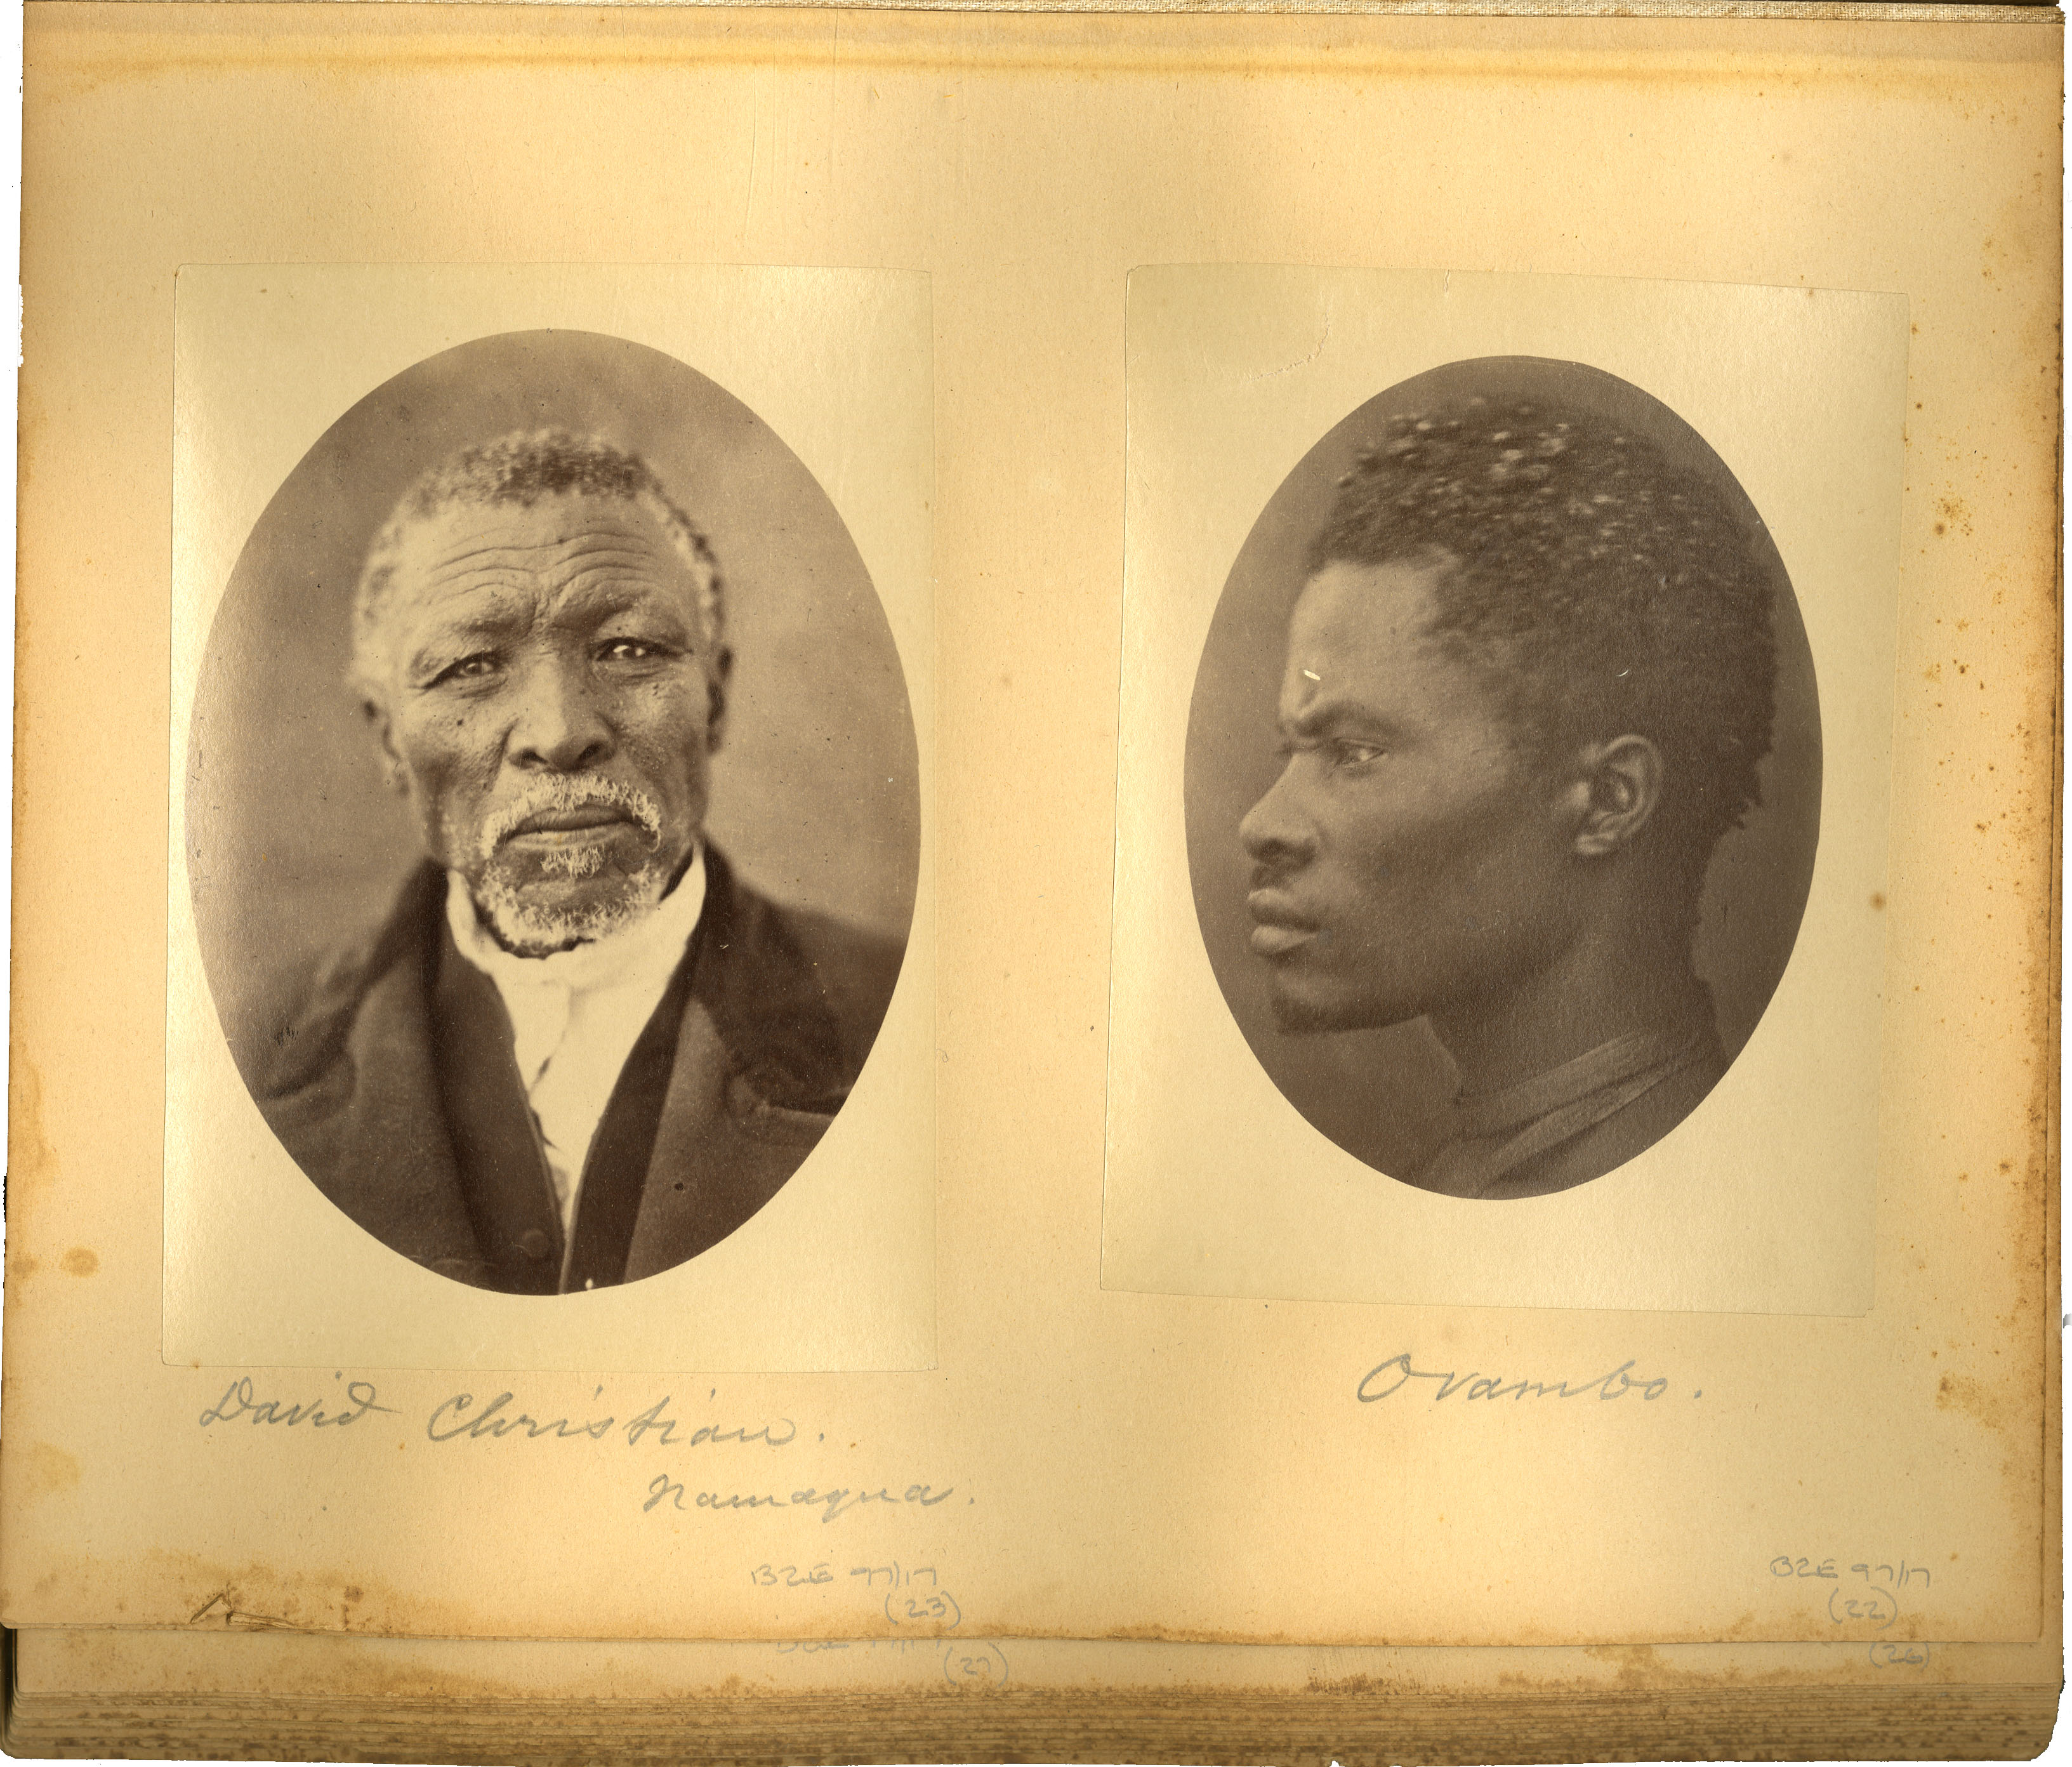 David Christian.
Namaqua.
BZE 97/17
(23)
(27)
Ovambo.
BZE 97/17
(22)
(26)